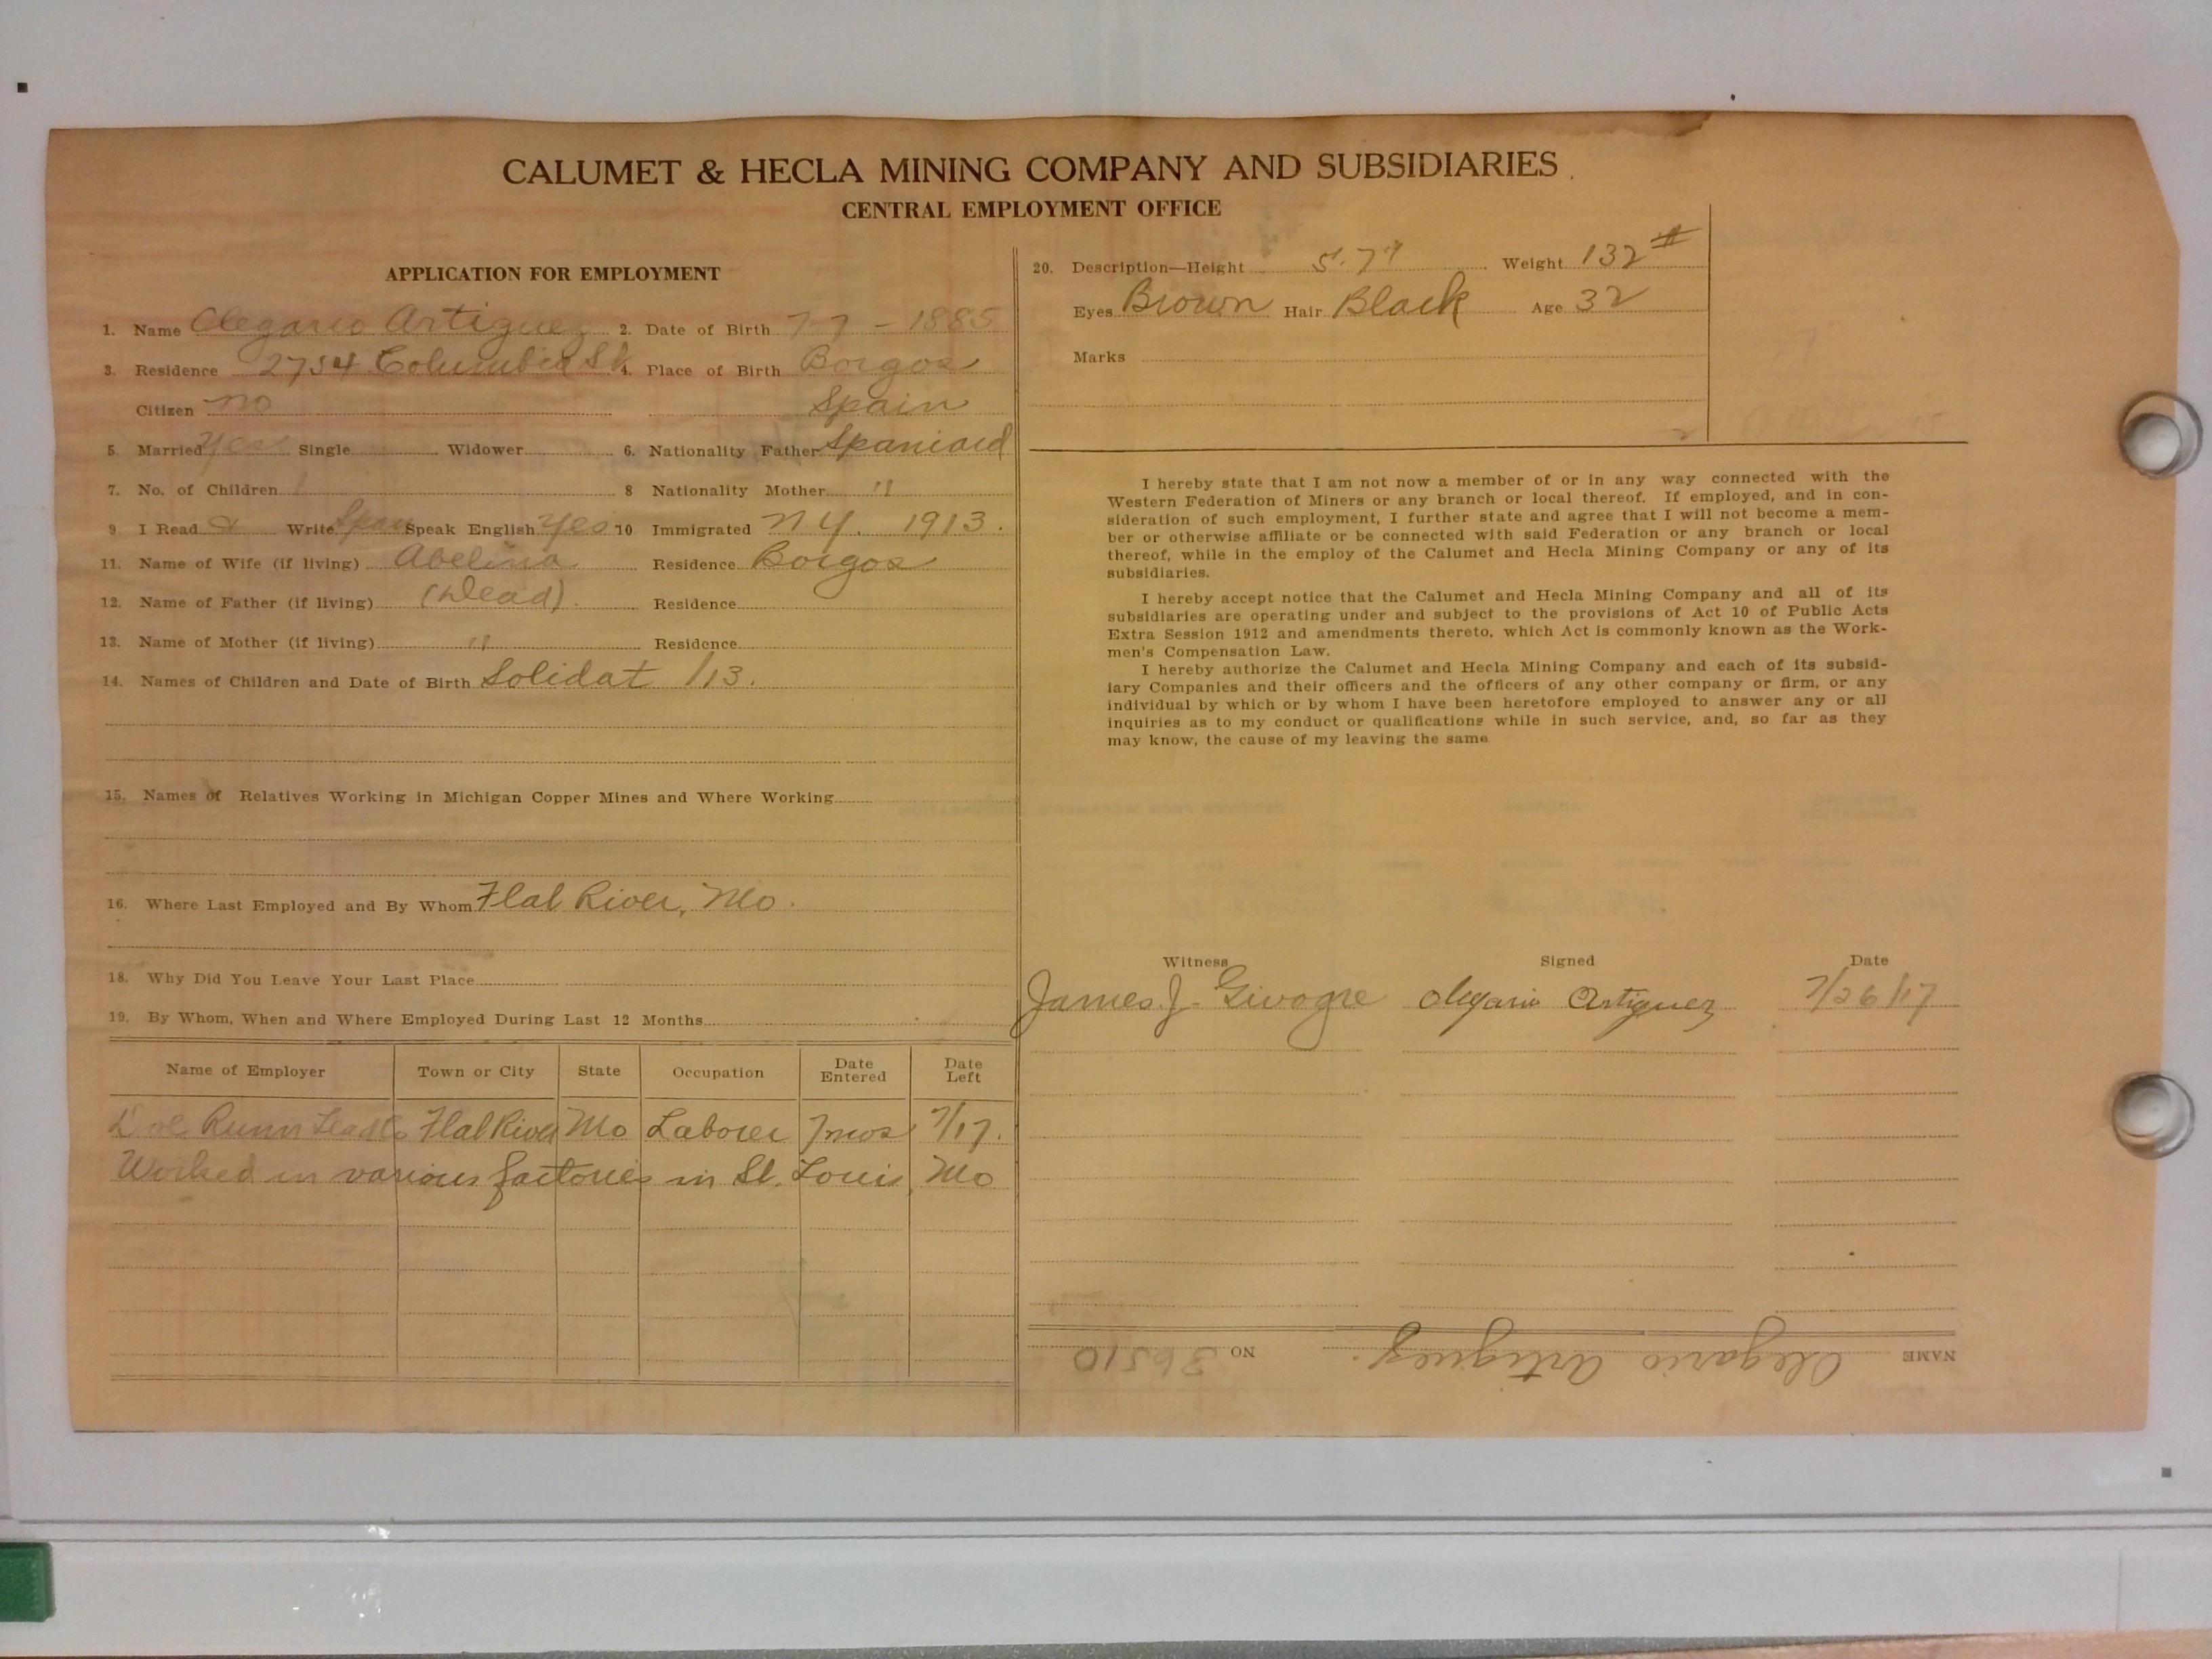 CALUMET & HECLA MINING COMPANY AND SUBSIDIARIES
CENTRAL EMPLOYMENT OFFICE
APPLICATION FOR EMPLOYMENT
1. Name Olegario Artiguez 2. Date of Birth 7-7-1885
3. Residence 2754 Columbia St. 4. Place of Birth Borgos
Citizen no Spain
5. Married yes Single Widower 6. Nationality Father Spaniard
7. No. of Children 1 8 Nationality Mother "
9 I Read & Write Span Speak English yes 10 Immigrated N Y. 1913.
11. Name of Wife (if living) Abelina Residence Borgos
12. Name of Father (if living) (Dead). Residence
13. Name of Mother (if living) " Residence
14. Names of Children and Date of Birth Solidat 1/13.
15. Names of Relatives Working in Michigan Copper Mines and Where Working
16. Where Last Employed and By Whom Flat River, Mo.
18. Why Did You Leave Your Last Place
19. By Whom, When and Where Employed During Last 12 Months
Name of Employer Town or City State Occupation Date Entered Date Left
Doe Runn Lead Co Flat River Mo Laborer 7 mos 7/17.
Worked in various factories in St. Louis, Mo
20. Description—Height 5'.7" Weight 132 #
Eyes Brown Hair Black Age 32
Marks
I hereby state that I am not now a member of or in any way connected with the
Western Federation of Miners or any branch or local thereof. If employed, and in con-
sideration of such employment, I further state and agree that I will not become a mem-
ber or otherwise affiliate or be connected with said Federation or any branch or local
thereof, while in the employ of the Calumet and Hecla Mining Company or any of its
subsidiaries.
I hereby accept notice that the Calumet and Hecla Mining Company and all of its
subsidiaries are operating under and subject to the provisions of Act 10 of Public Acts
Extra Session 1912 and amendments thereto, which Act is commonly known as the Work-
men's Compensation Law.
I hereby authorize the Calumet and Hecla Mining Company and each of its subsid-
iary Companies and their officers and the officers of any other company or firm, or any
individual by which or by whom I have been heretofore employed to answer any or all
inquiries as to my conduct or qualifications while in such service, and, so far as they
may know, the cause of my leaving the same
Witness Signed Date
James J. Givogre Olegario Artiguez 7/26/17
NAME Olegario Artiguez. NO 36510